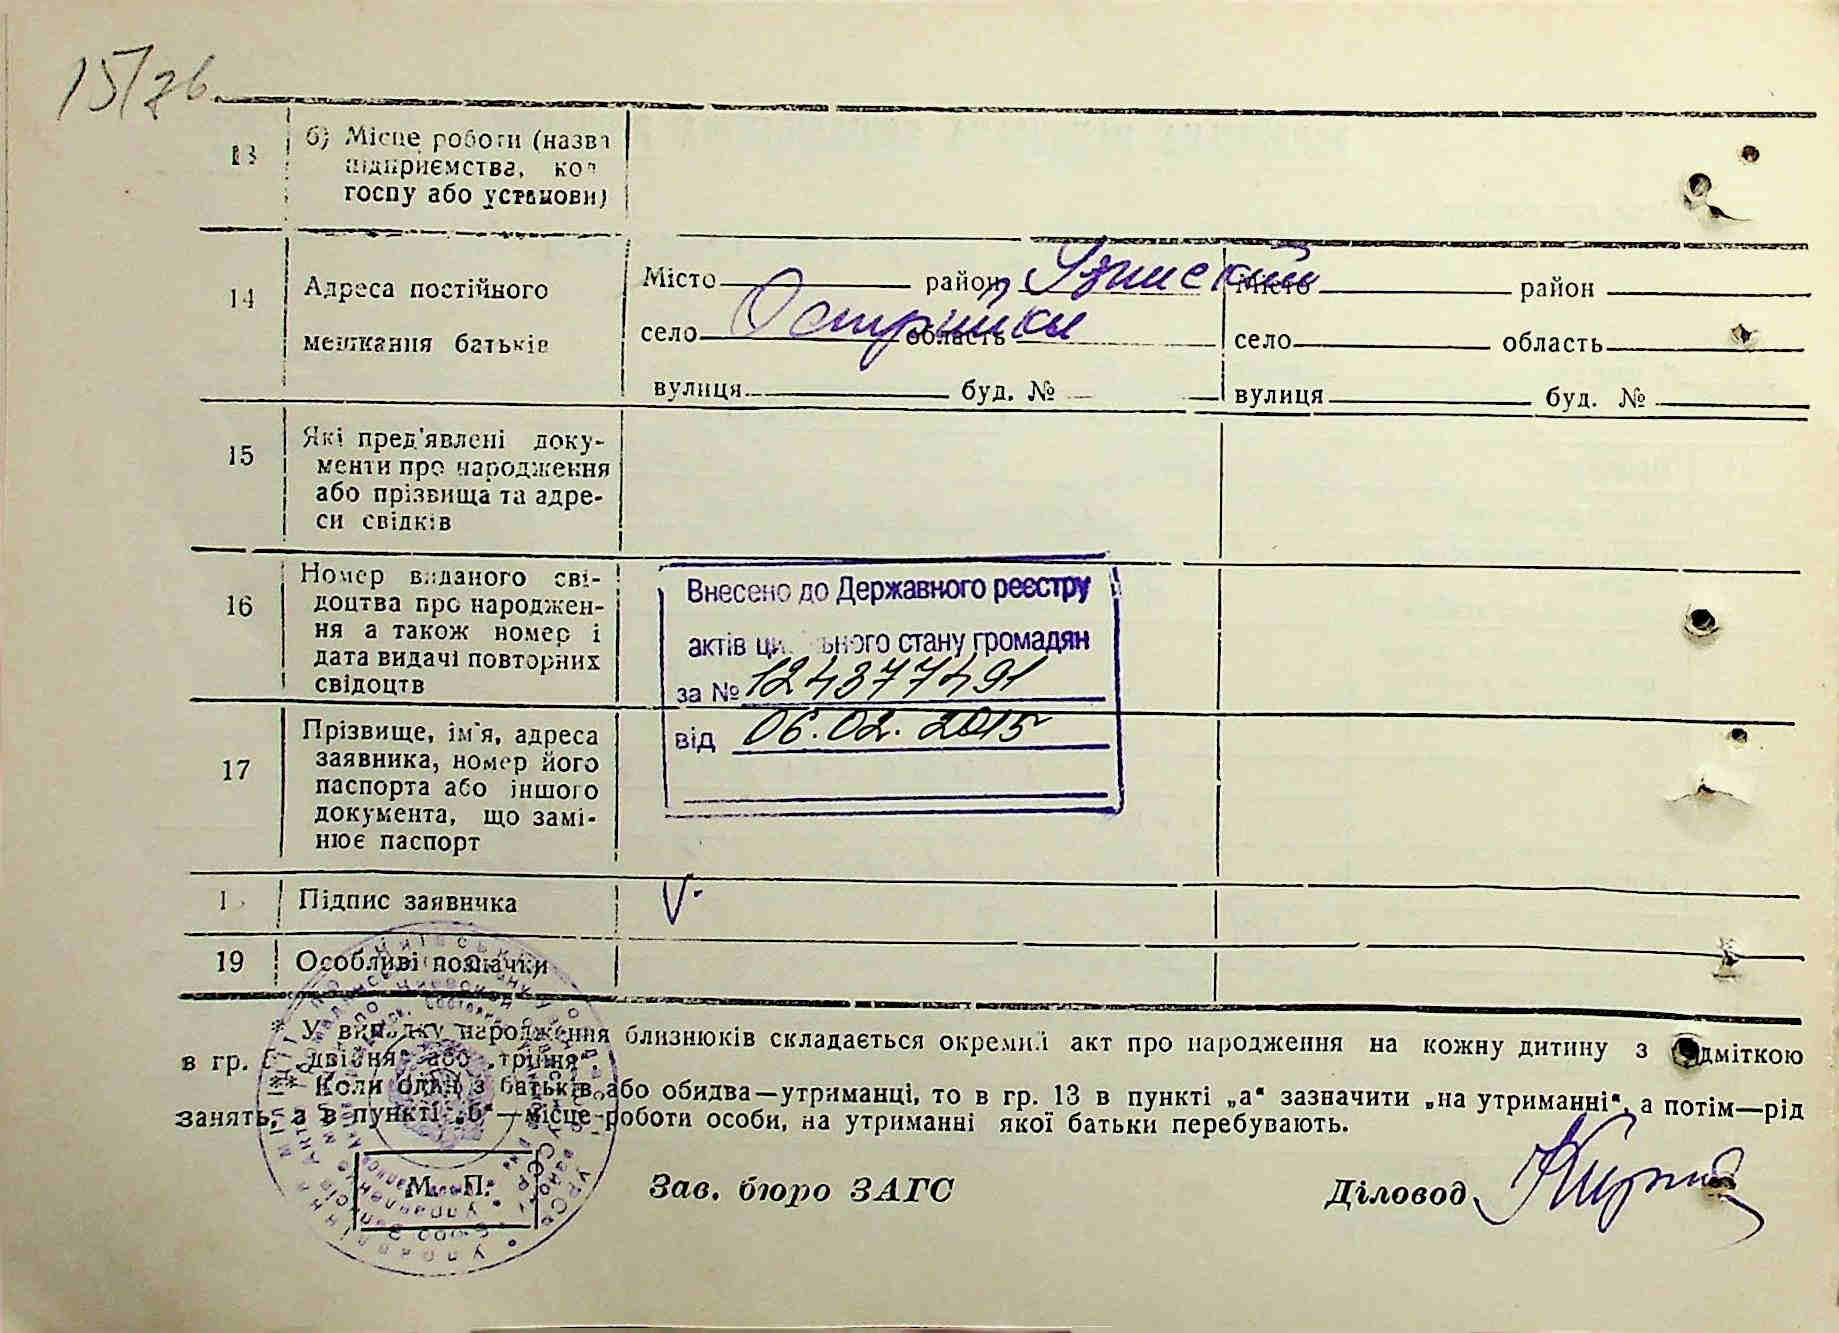 15/76
13 б) Місце роботи (назва
підприємства, кол
госпу або установи)
14 Адреса постійного
мешкання батьків
Місто район Узинский
село Острійки область
вулиця буд. №
Місто район
село область
вулиця буд. №
15 Які пред'явлені доку-
менти про народження
або прізвища та адре-
си свідків
16 Номер виданого сві-
доцтва про народжен-
ня а також номер і
дата видачі повторних
свідоцтв
Внесено до Державного реєстру
актів цивільного стану громадян
за № 124377491
від 06.02.2015
17 Прізвище, ім'я, адреса
заявника, номер його
паспорта або іншого
документа, що замі-
нює паспорт
Підпис заявника V.
19 Особливі позначки
У випадку народження близнюків складається окремий акт про народження на кожну дитину з відміткою
в гр. „двійня" або „трійня"
Коли один з батьків або обидва—утриманці, то в гр. 13 в пункті „а" зазначити „на утриманні", а потім—рід
занять, а в пункті „б"—місце роботи особи, на утриманні якої батьки перебувають.
М. П. Зав. бюро ЗАГС Діловод